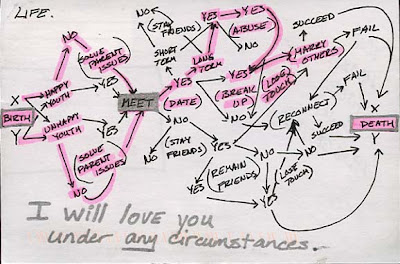 LIFE.
NO
(SOLVE PARENT ISSUES)
X
HAPPY YOUTH
YES
BIRTH
Y
UNHAPPY YOUTH
YES
(SOLVE PARENT ISSUES)
NO
MEET
NO
(STAY FRIENDS)
YES
SHORT TERM
LONG TERM
YES
(DATE)
NO
(STAY FRIENDS)
NO
YES
YES
(ABUSE)
NO
YES
(BREAK UP)
NO
YES
(REMAIN FRIENDS)
YES
NO
NO
(LOSE TOUCH)
YES
(LOSE TOUCH)
MARRY OTHERS
SUCCEED
FAIL
(RECONNECT)
FAIL
SUCCEED
X
DEATH
Y
I will love you
under any circumstances.